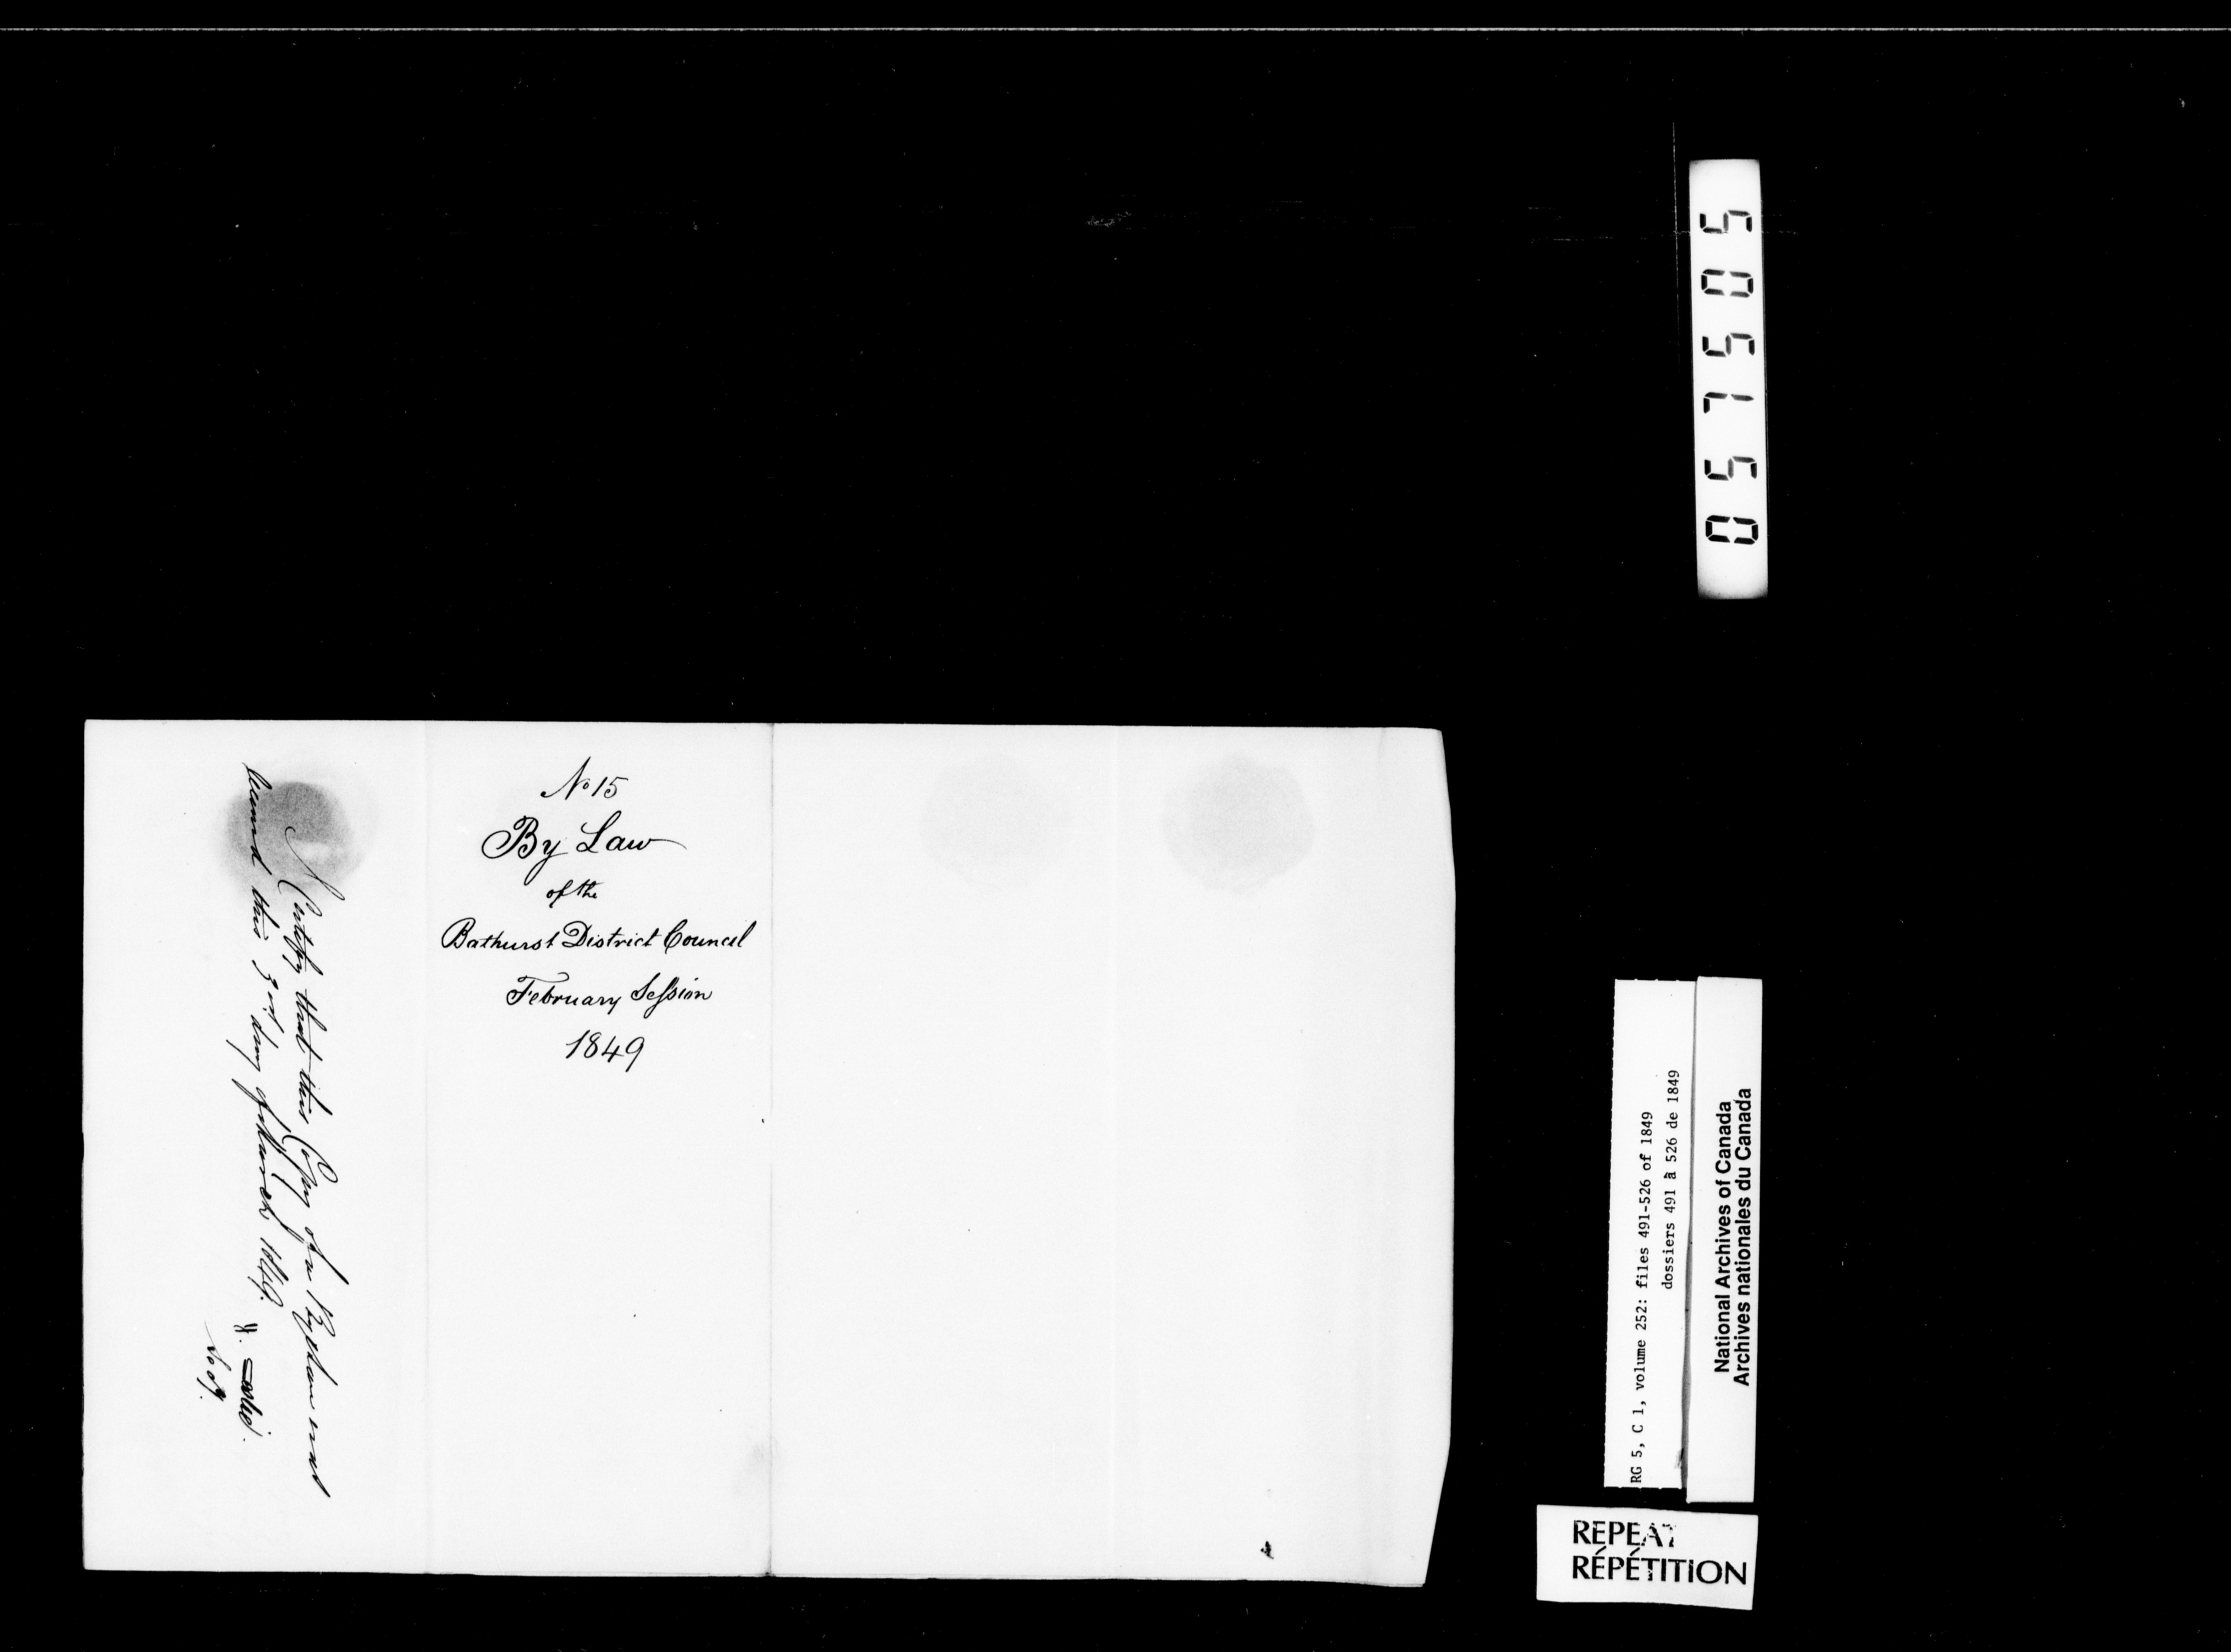 No 15
By Law
of the
Bathurst District Council
February Session
1849
I Certify that this Copy of a By Law was
this 3rd day of March 1849.
050575
RG 5, C 1, volume 252: files 491-526 of 1849
dossiers 491 à 526 de 1849
National Archives of Canada
Archives nationales du Canada
REPEAT
RÉPÉTITION